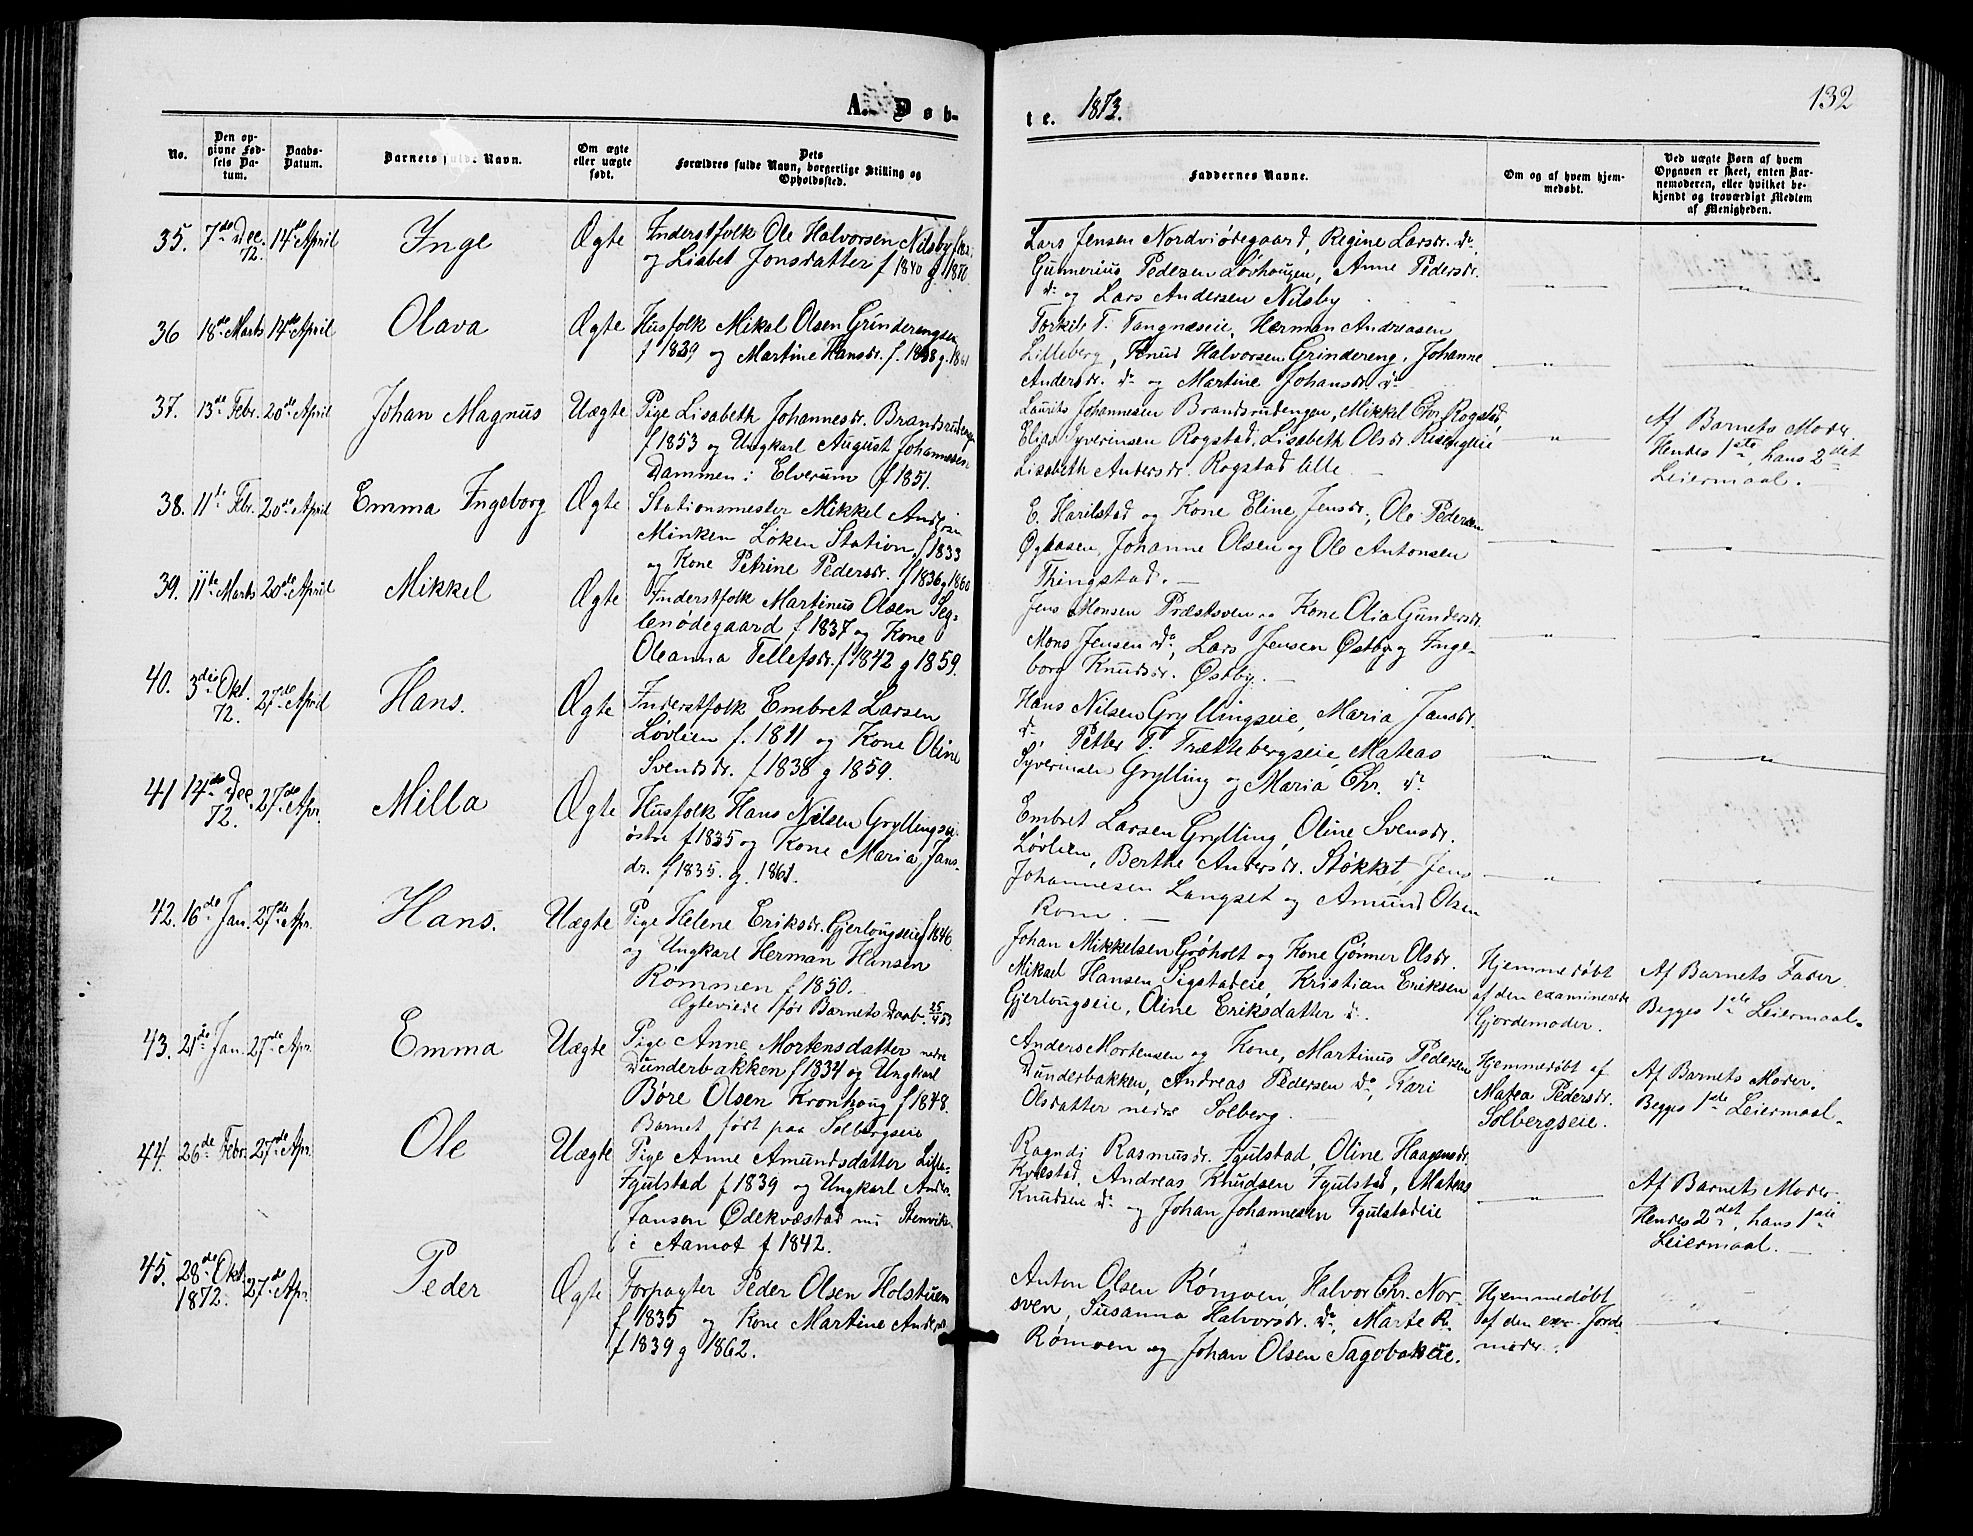 132
A. Døb-
te. 1873.
No.
Den op-
givne Fød-
sels Da-
tum.
Daabs-
Datum.
Barnets fulde Navn.
Om ægte
eller uægte
født.
Dets
Forældres fulde Navn, borgerlige Stilling og
Opholdssted.
Faddernes Navne.
Om og af hvem hjem-
medøbt.
Ved uægte Børn af hvem
Opgaven er skeet, enten Bar-
nemoderen, eller hvilket be-
kjendt og troværdigt Medlem
af Menigheden.
35. 7de Dec. 72. 14de April Inge Ægte
Inderstfolk Ole Halvorsen Nilsby
og Lisbet Jonsdatter f 1840 g. 1870.
Lars Jensen Nordviødegaard, Regine Larsdr. do
Gunnerius Pedersen Løvhougen, Anne Pedersdr.
do og Lars Andersen Nilsby
36 18de Marts 14de April Olava Ægte
Husfolk Mikal Olsen Grinderengen
f 1839 og Martine Hansdr. f. 1838 g. 1861
Torkil T. Tangnæseie, Herman Andreasen
Lilleberg, Knud Halvorsen Grindereng, Johanne
Andersdr. do og Martine Johansdr do
37. 13de Febr. 20de April Johan Magnus Uægte
Pige Lisabeth Johannesdr. Brandsrudengen
f 1853 og Ungkarl August Johannesen
Dammen i Elverum f 1851.
Laurits Johannesen Brandsrudengen, Mikkel Chr. Rogstad,
Elias Syverinsen Rogstad, Lisabeth Olsdr. Risengseie
Lisabeth Andersdr. Rogstad lille
Af Barnets Moder
Hendes 1ste, hans 2det
Leiermaal.
38. 11te Febr. 20de April Emma Ingeborg Ægte
Stationsmester Mikkel Andersen
Minken Løken Station, f 1833
og Kone Petrine Pedersdr. f 1836 g 1860
E. Harilstad og Kone Eline Jensdr., Ole Pedersen
Øgaasen, Johanne Olsen og Ole Antonsen
Thingstad.
39. 11te Marts 20de April Mikkel Ægte
Inderstfolk Martinus Olsen Seg-
lenødegaard f 1837 og Kone
Oleanna Tellefsdr. f 1842 g 1859.
Jens Monsen Præstsven og Kone Olia Gundersdr.
Mons Jensen do, Lars Jensen Østby og Inge-
borg Knudsdr. Østby.
40. 3die Okt. 72. 27de April Hans. Ægte
Inderstfolk Embret Larsen
Løvlien f. 1811 og Kone Oline
Svendsdr. f 1838 g 1859.
Hans Nilsen Gryllingseie, Maria Jansdr.
do, Petter T. Trættebergseie, Mateas
Syverinsen Grylling og Maria Chr. do
41 14de Dec. 72. 27de Apr. Milla Ægte
Husfolk Hans Nilsen Gryllingsei
østre f 1835 og Kone Maria Jans-
dr. f 1835. g. 1861.
Embret Larsen Grylling, Oline Svensdr.
Løvlien, Berthe Andersdr. Støkket, Jens
Johannesen Langset og Amund Olsen
Rom.
42. 16de Jan. 27de Apr. Hans. Uægte
Pige Helene Eriksdr. Gjerlougseie f 1846
og Ungkarl Herman Hansen
Rømmen f 1850.
Ægteviede før Barnets Daab
Johan Mikkelsen Grøholt og Kone Gønner Olsdr.
Mikael Hansen Sigstadeie, Kristian Eriksen
Gjerlougseie, Oline Eriksdatter do.
Hjemmedøbt
af den examinerede
Gjordemoder.
Af Barnets Fader
Begges 1ste Leiermaal.
43. 21de Jan. 27de Apr. Emma Uægte
Pige Anne Mortensdatter nedre
Dunderbakken f 1834 og Ungkarl
Børe Olsen Kronhoug f 1848.
Barnet født paa Solbergseie
Anders Mortensen og Kone, Martinus Pedersen
Dunderbakken, Andreas Pedersen do, Kari
Olsdatter nedre Solberg.
Hjemmedøbt af
Matea Pedersdr.
Solbergseie.
Af Barnets Moder.
Begges 1ste Leiermaal.
44. 26de Febr. 27de Apr. Ole Uægte
Pige Anne Amundsdatter Lille-
Fgulstad f 1839 og Ungkarl Anders
Jansen Ødekvæstad nu Stenvik
i Aamot f 1842.
Ragndi Rasmusdr. Fgulstad, Oline Haagensdr.
Kvæstad, Andreas Knudsen Fgulstad, Mateas
Knudsen do og Johan Johannesen Fgulstadeie
Af Barnets Moder
Hendes 2det, hans 1ste
Leiermaal.
45. 28de Okt. 1872. 27de Apr. Peder Ægte
Forpagter Peder Olsen Holstuen
f 1835 og Kone Martine Andersdr.
f 1839 g 1862.
Anton Olsen Rømoen, Halvor Chr. Nor-
sven, Susanna Halvorsdr. do, Marte R.
Rømoen og Johan Olsen Tagobakeie.
Hjemmedøbt
af den exr. Jorde
moder.